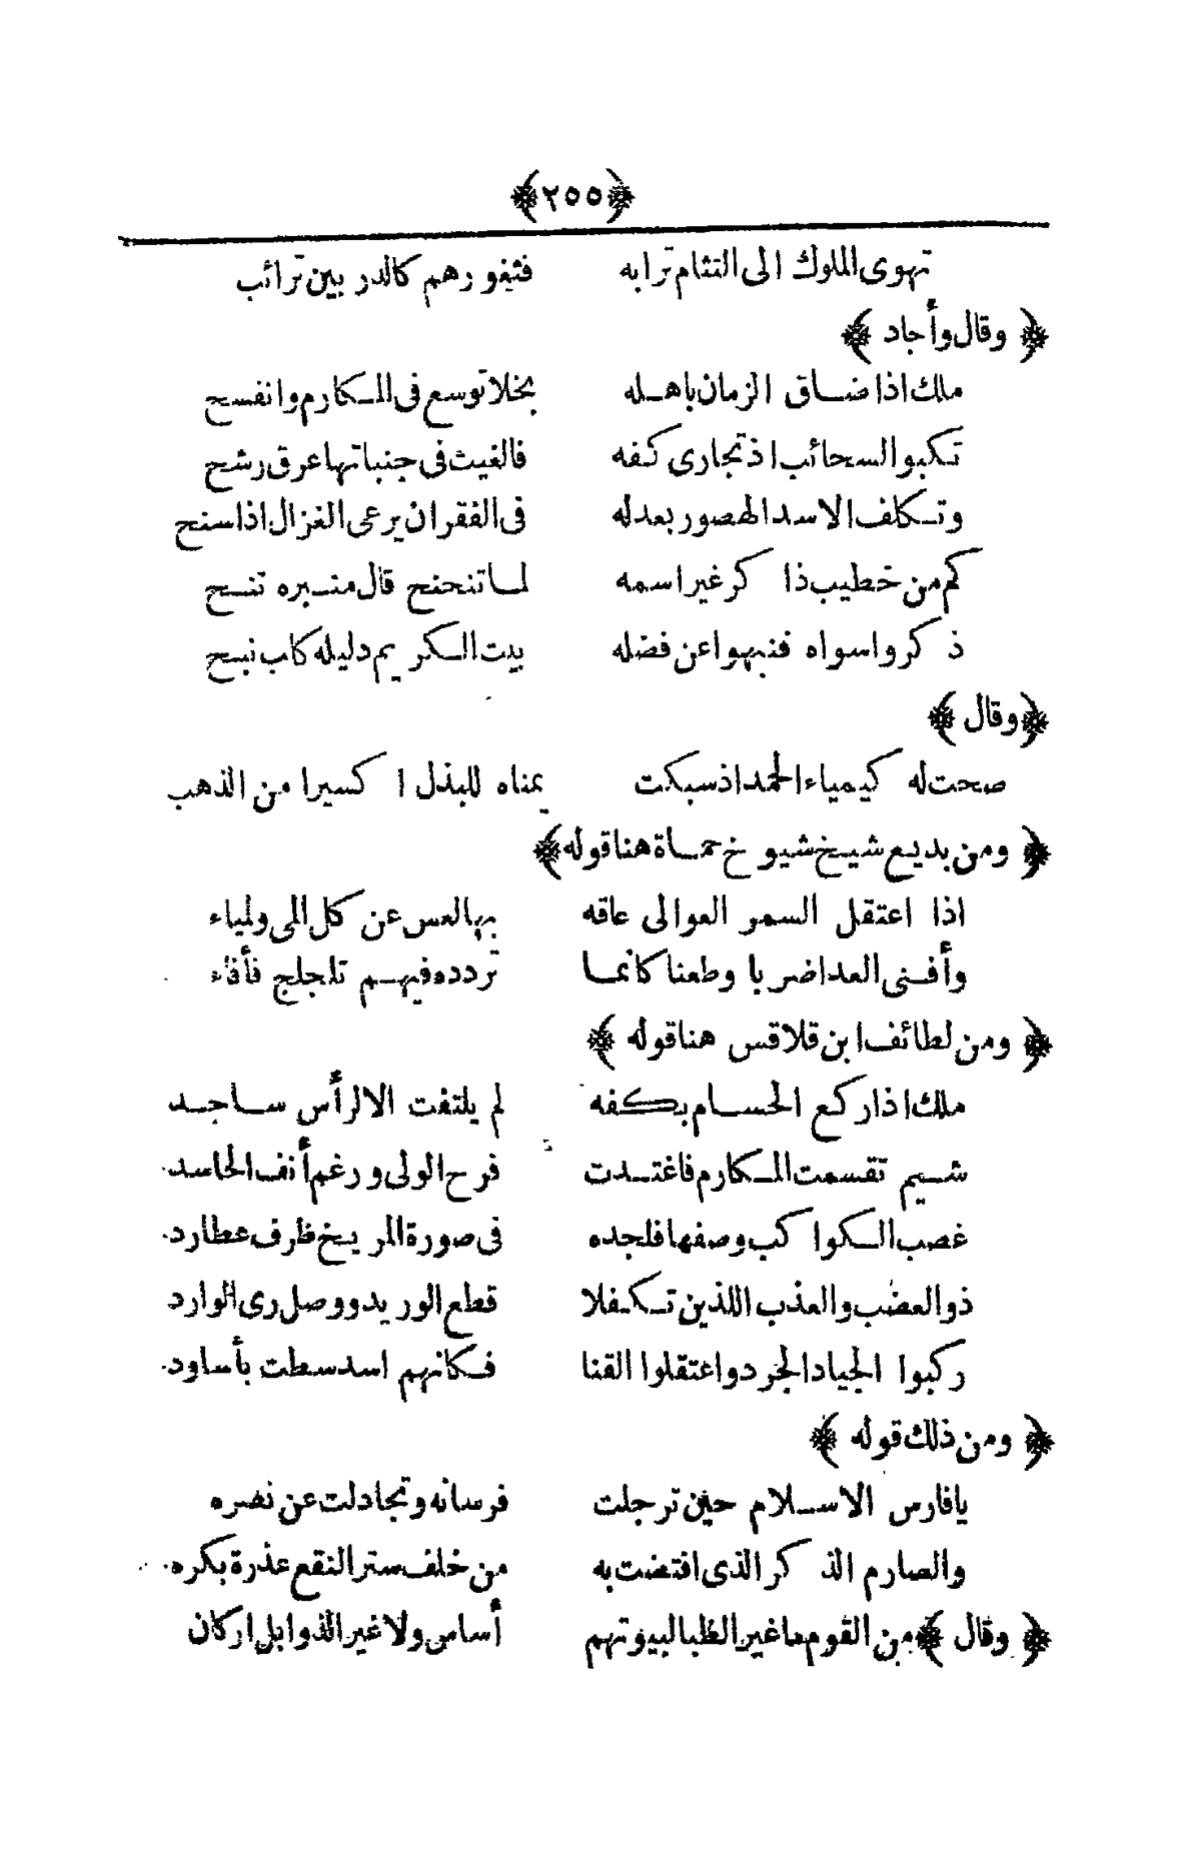 ﴿٢٥٥﴾
تهوى الملوك الى التثام ترابه فثغورهم كالدر بين ترائب
﴿ وقال وأجاد ﴾
ملك اذا ضاق الزمان باهله بخلا توسع فى المكارم وانفسح
تكبو السحائب اذ تجارى كفه فالغيث فى جنباتها عرق رشح
وتكلف الاسد الهصور بعدله فى الفقر ان يرعى الغزال اذا سنح
كم من خطيب ذاكر غير اسمه لما تنحنح قال منبره تنح
ذكروا سواه فنبهوا عن فضله بيت الكريم دليله كاب نبح
﴿ وقال ﴾
صحت له كيمياء الحمد اذ سبكت يمناه للبذل اكسيرا من الذهب
﴿ ومن بديع شيخ شيوخ حماة هنا قوله ﴾
اذا اعتقل السمر العوالى عاقه بها العس عن كل المى ولمياء
وأفنى العدا ضربا وطعنا كانما تردده فيهم تلجلج فأفاء
﴿ ومن لطائف ابن قلاقس هنا قوله ﴾
ملك اذا ركع الحسام بكفه لم يلتفت الا لرأس ساجد
شيم تقسمت المكارم فاغتدت فرح الولى ورغم أنف الحاسد
غصب الكواكب وصفها فلجده فى صورة المريخ ظرف عطارد
ذو العضب والعذب اللذين تكفلا قطع الوريد ووصل رى الوارد
ركبوا الجياد الجرد واعتقلوا القنا فكانهم اسد سطت بأساود
﴿ ومن ذلك قوله ﴾
يا فارس الاسلام حين ترجلت فرسانه وتجادلت عن نصره
والصارم الذكر الذى افتضت به من خلف ستر النقع عذرة بكره
﴿ وقال ﴾ من القوم ما غير الظبا لبيوتهم أساس ولا غير الذوابل اركان